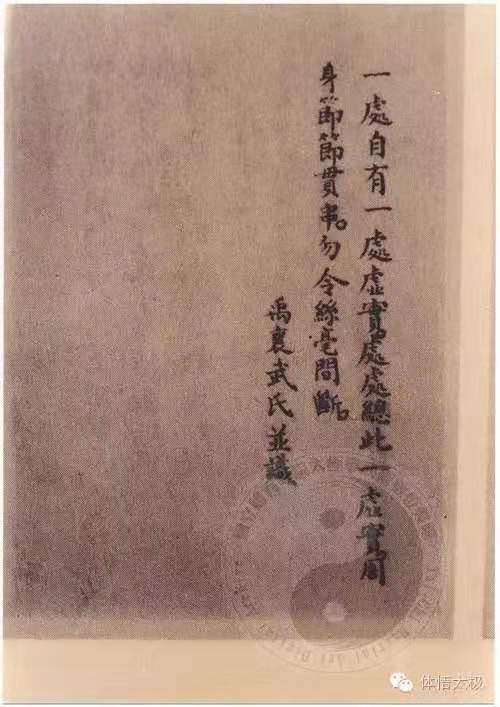 一處自有一處虛實處處總此一虛實周
身節節貫串。勿令絲毫間斷。
禹襄武氏並識
体悟太极